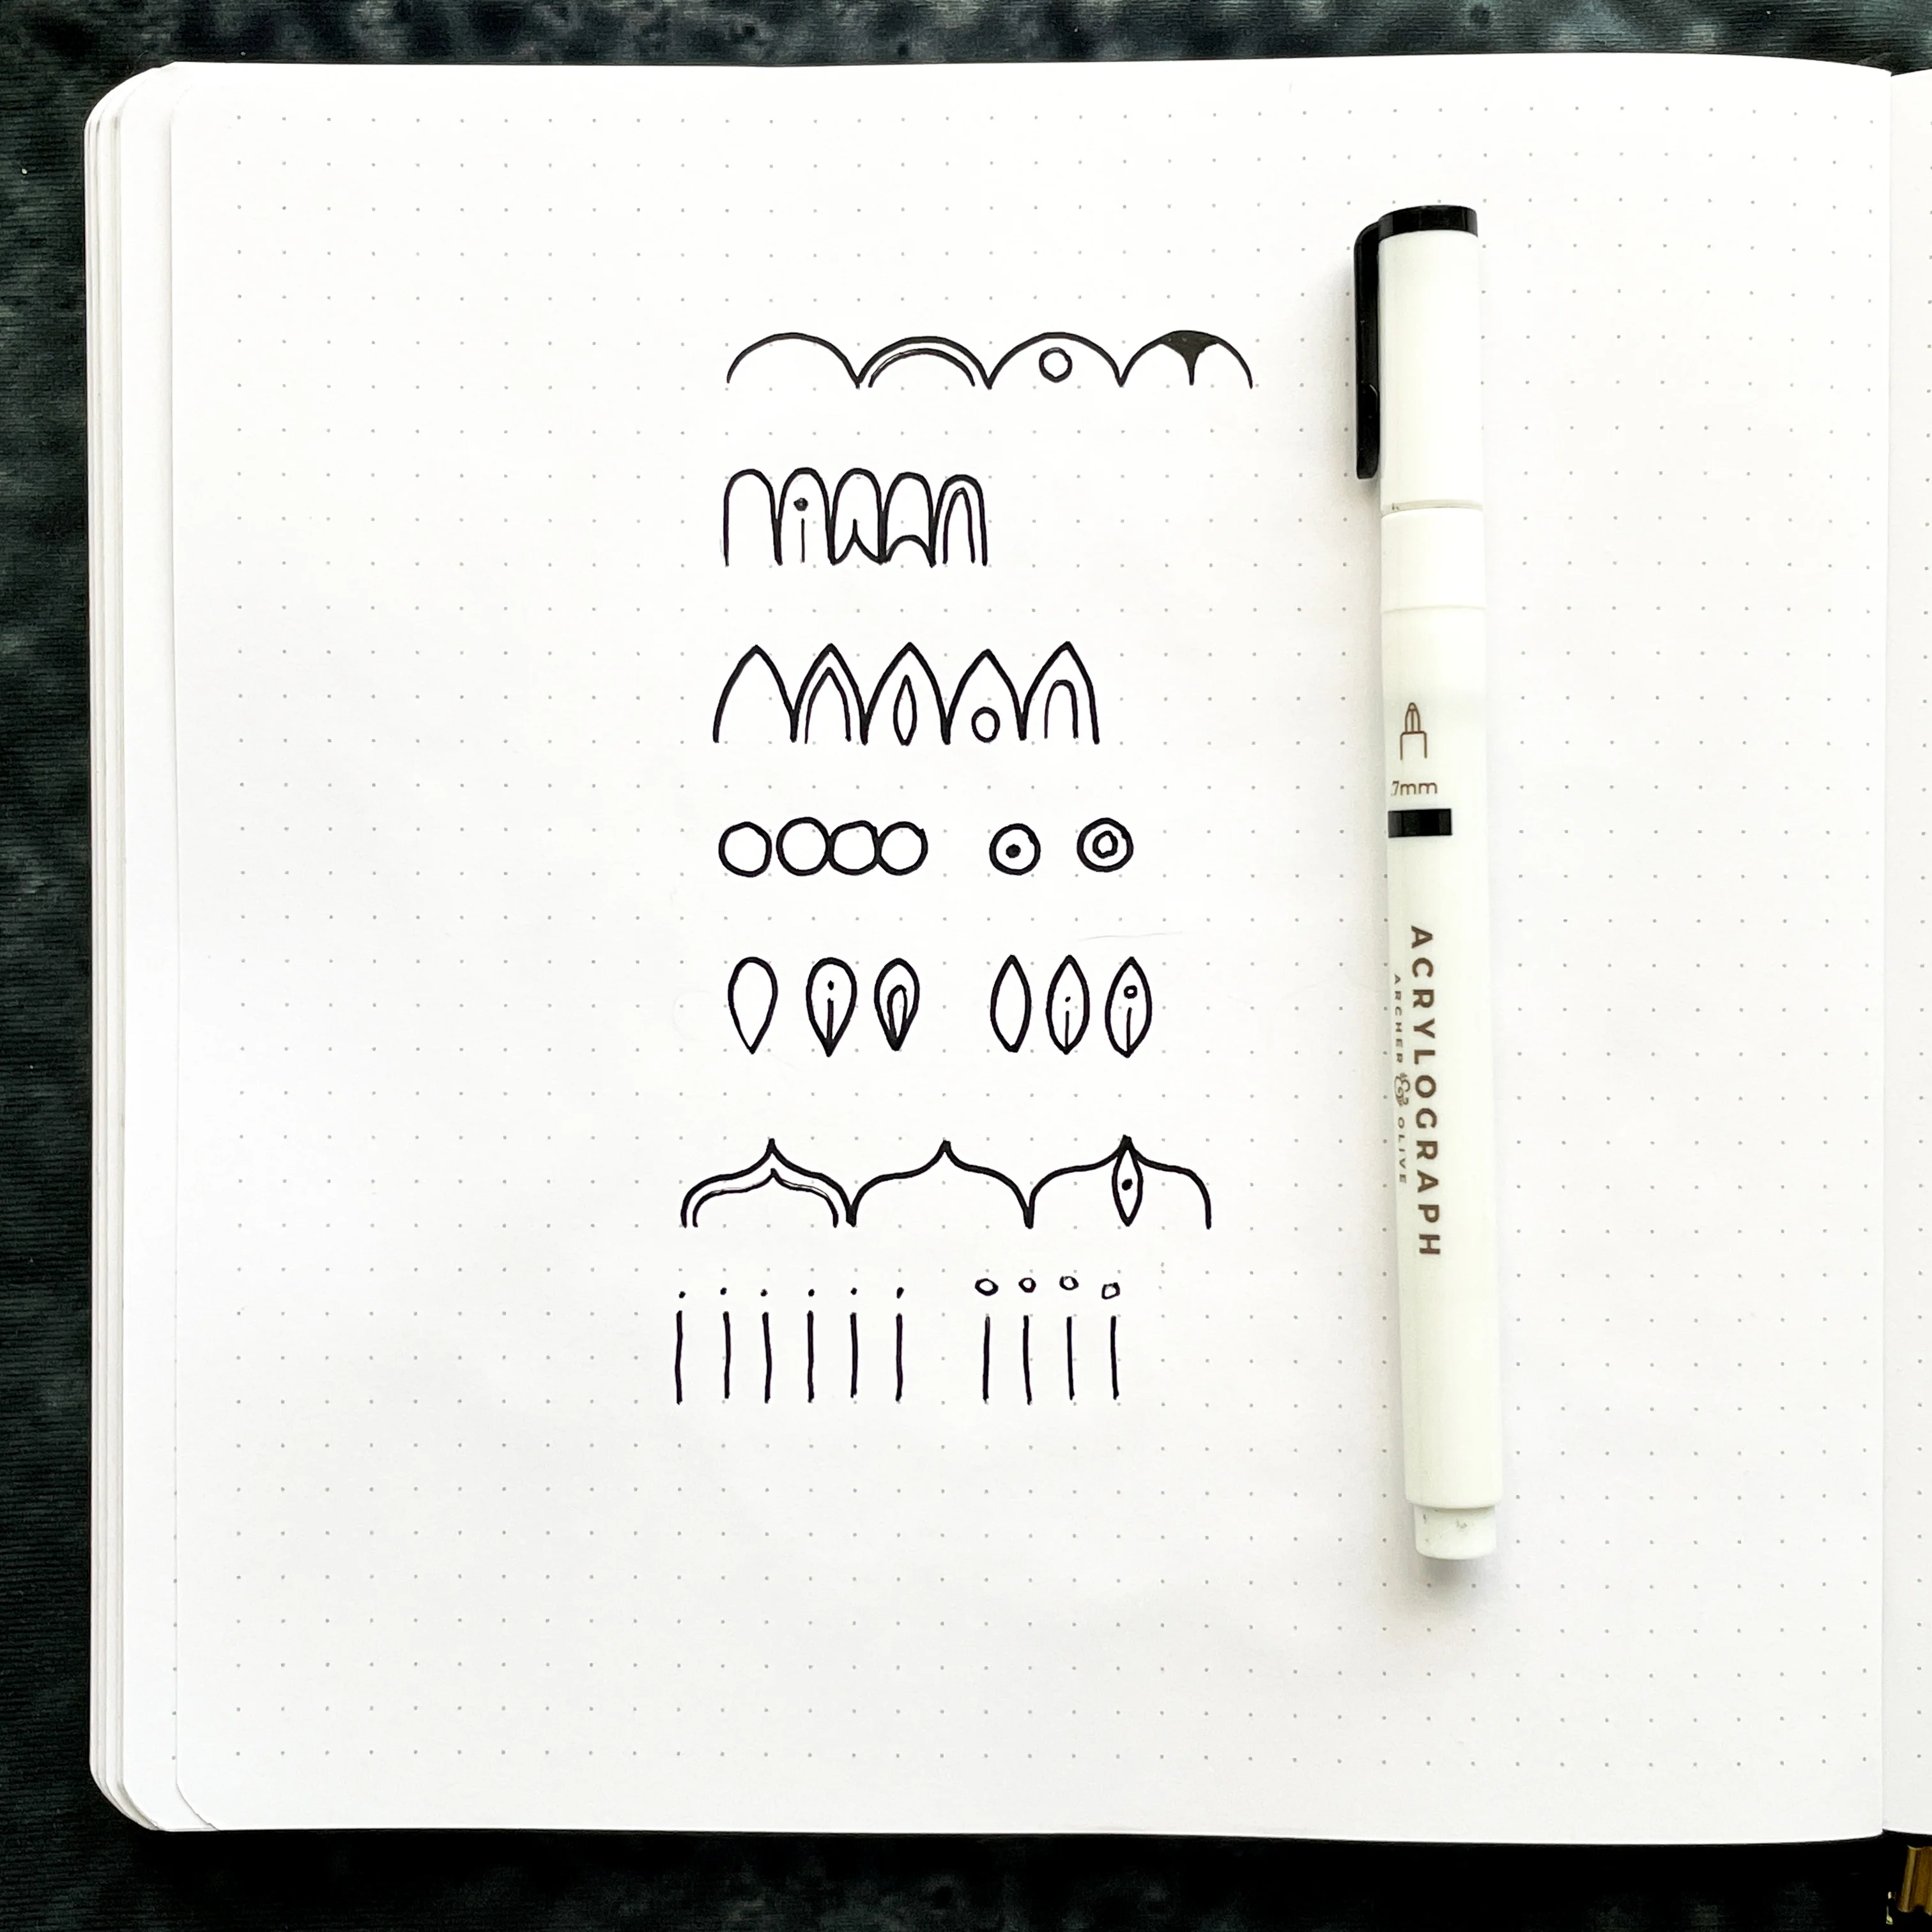 .7mm
ACRYLOGRAPH
ARCHER & OLIVE